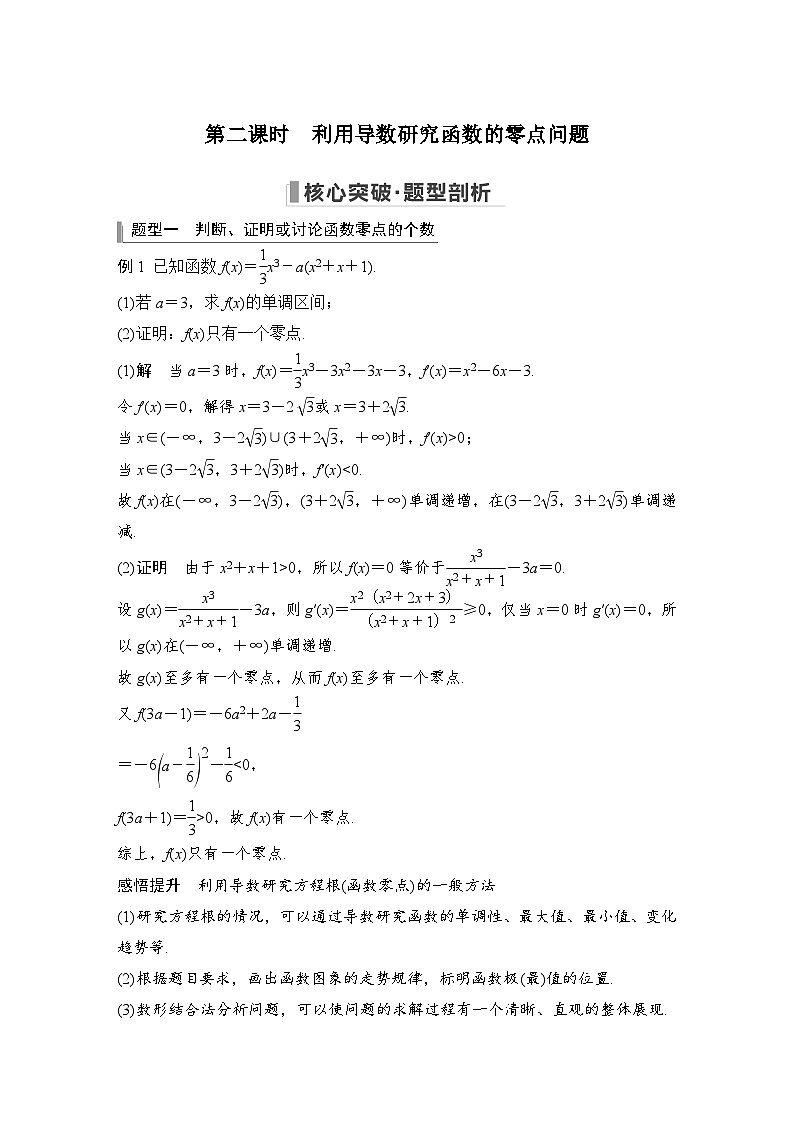 第二课时　利用导数研究函数的零点问题
核心突破·题型剖析
题型一　判断、证明或讨论函数零点的个数
例1 已知函数 f(x)＝\frac{1}{3}x³－a(x²＋x＋1).
(1)若 a＝3，求 f(x)的单调区间；
(2)证明：f(x)只有一个零点.
(1)解　当 a＝3 时，f(x)＝\frac{1}{3}x³－3x²－3x－3，f′(x)＝x²－6x－3.
令 f′(x)＝0，解得 x＝3－2√3或 x＝3＋2√3.
当 x∈(－∞，3－2√3)∪(3＋2√3，＋∞)时，f′(x)>0；
当 x∈(3－2√3，3＋2√3)时，f′(x)<0.
故 f(x)在(－∞，3－2√3)，(3＋2√3，＋∞)单调递增，在(3－2√3，3＋2√3)单调递
减.
(2)证明　由于 x²＋x＋1>0，所以 f(x)＝0 等价于\frac{x³}{x²＋x＋1}－3a＝0.
设 g(x)＝\frac{x³}{x²＋x＋1}－3a，则 g′(x)＝\frac{x²（x²＋2x＋3）}{（x²＋x＋1）²}≥0，仅当 x＝0 时 g′(x)＝0，所
以 g(x)在(－∞，＋∞)单调递增.
故 g(x)至多有一个零点，从而 f(x)至多有一个零点.
又 f(3a－1)＝－6a²＋2a－\frac{1}{3}
＝－6(a－\frac{1}{6})²－\frac{1}{6}<0，
f(3a＋1)＝\frac{1}{3}>0，故 f(x)有一个零点.
综上，f(x)只有一个零点.
感悟提升　利用导数研究方程根(函数零点)的一般方法
(1)研究方程根的情况，可以通过导数研究函数的单调性、最大值、最小值、变化
趋势等.
(2)根据题目要求，画出函数图象的走势规律，标明函数极(最)值的位置.
(3)数形结合法分析问题，可以使问题的求解过程有一个清晰、直观的整体展现.